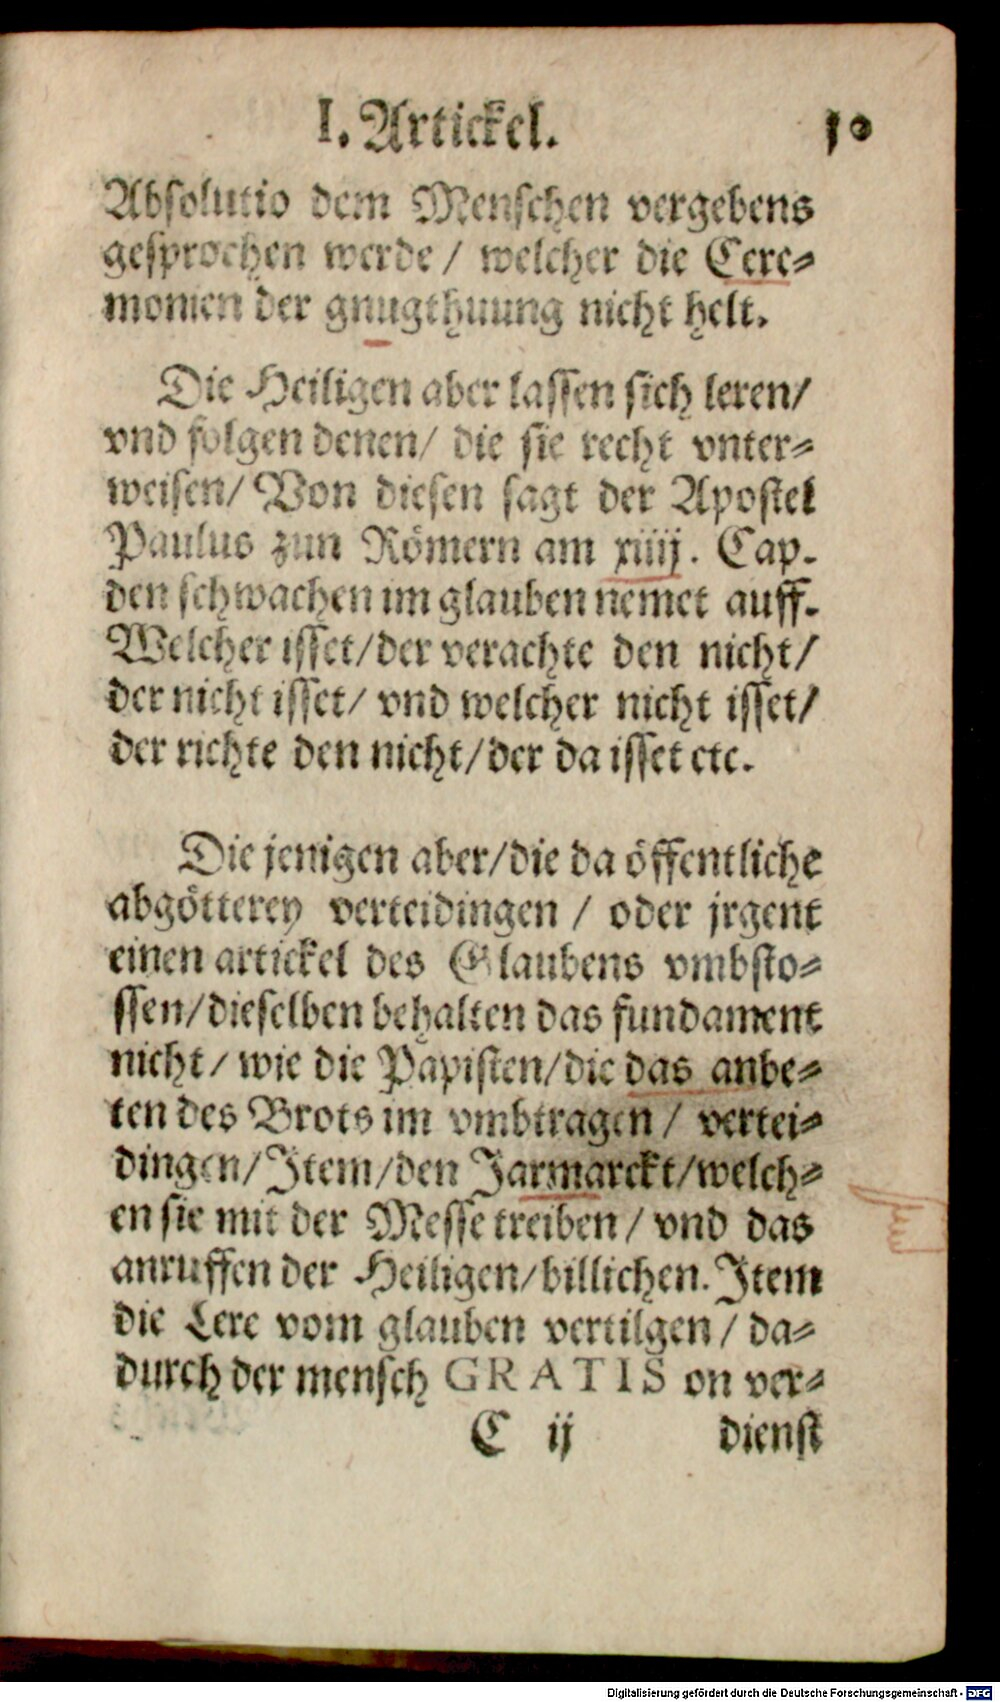 I. Artickel. 10
Absolutio dem Menschen vergebens
gesprochen werde / welcher die Cere⸗
monien der gnugthuung nicht helt.
Die Heiligen aber lassen sich leren/
vnd folgen denen/ die sie recht vnter⸗
weisen/ Von diesen sagt der Apostel
Paulus zun Römern am xiiij. Cap.
den schwachen im glauben nemet auff.
Welcher isset/der verachte den nicht/
der nicht isset/ vnd welcher nicht isset/
der richte den nicht/der da isset etc.
Die jenigen aber/die da öffentliche
abgötterey verteidingen / oder jrgent
einen artickel des Glaubens vmbsto⸗
ssen/dieselben behalten das fundament
nicht/ wie die Papisten/die das anbe⸗
ten des Brots im vmbtragen / vertei⸗
dingen/Item/den Jarmarckt/welch⸗
en sie mit der Messe treiben/ vnd das
anruffen der Heiligen/billichen. Item
die Lere vom glauben vertilgen/ da⸗
durch der mensch GRATIS on ver⸗
C ij dienst
Digitalisierung gefördert durch die Deutsche Forschungsgemeinschaft - DFG